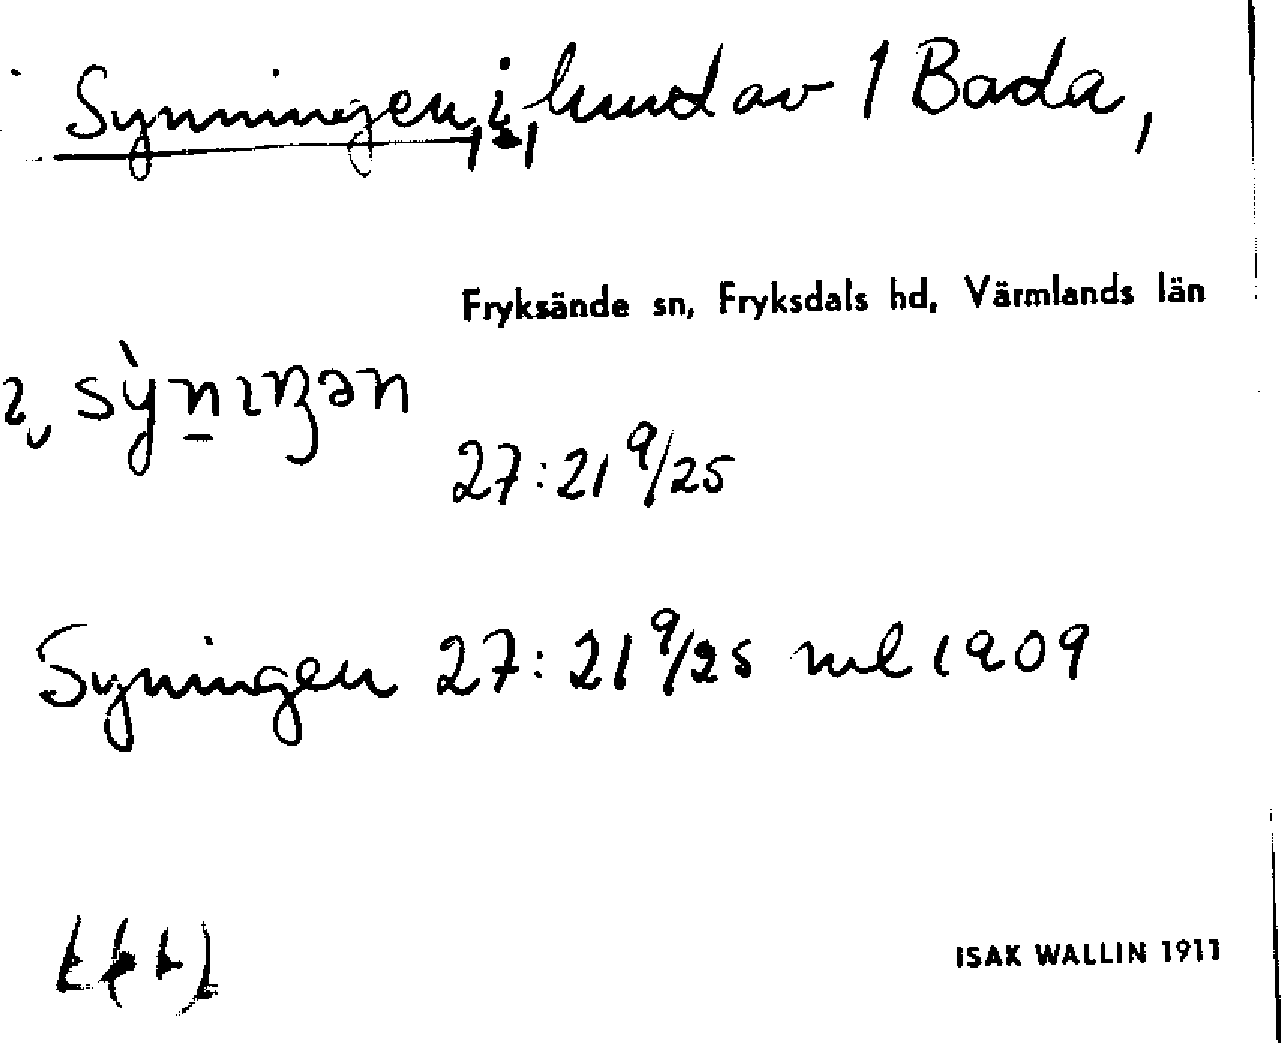 Synningen, i, hmd av 1 Bada,
Fryksände sn, Fryksdals hd, Värmlands län
27:21 9/25
Syningen 27:21 9/25 ml 1909
ISAK WALLIN 1911